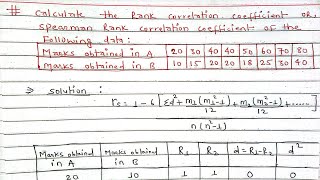 # Calculate the Rank correlation coefficient or,
Spearman Rank correlation coefficient of the
Following data:
Marks obtained in A 20 30 40 40 50 60 70 80
Marks obtained in B 10 15 20 20 18 25 30 40
⇒ solution:
r = 1 - 6 [Σd² + m₁(m₁²-1)/12 + m₂(m₂²-1)/12 + .....]
n(n²-1)
Marks obtained in A Marks obtained in B R₁ R₂ d=R₁-R₂ d²
20 10 1 1 0 0